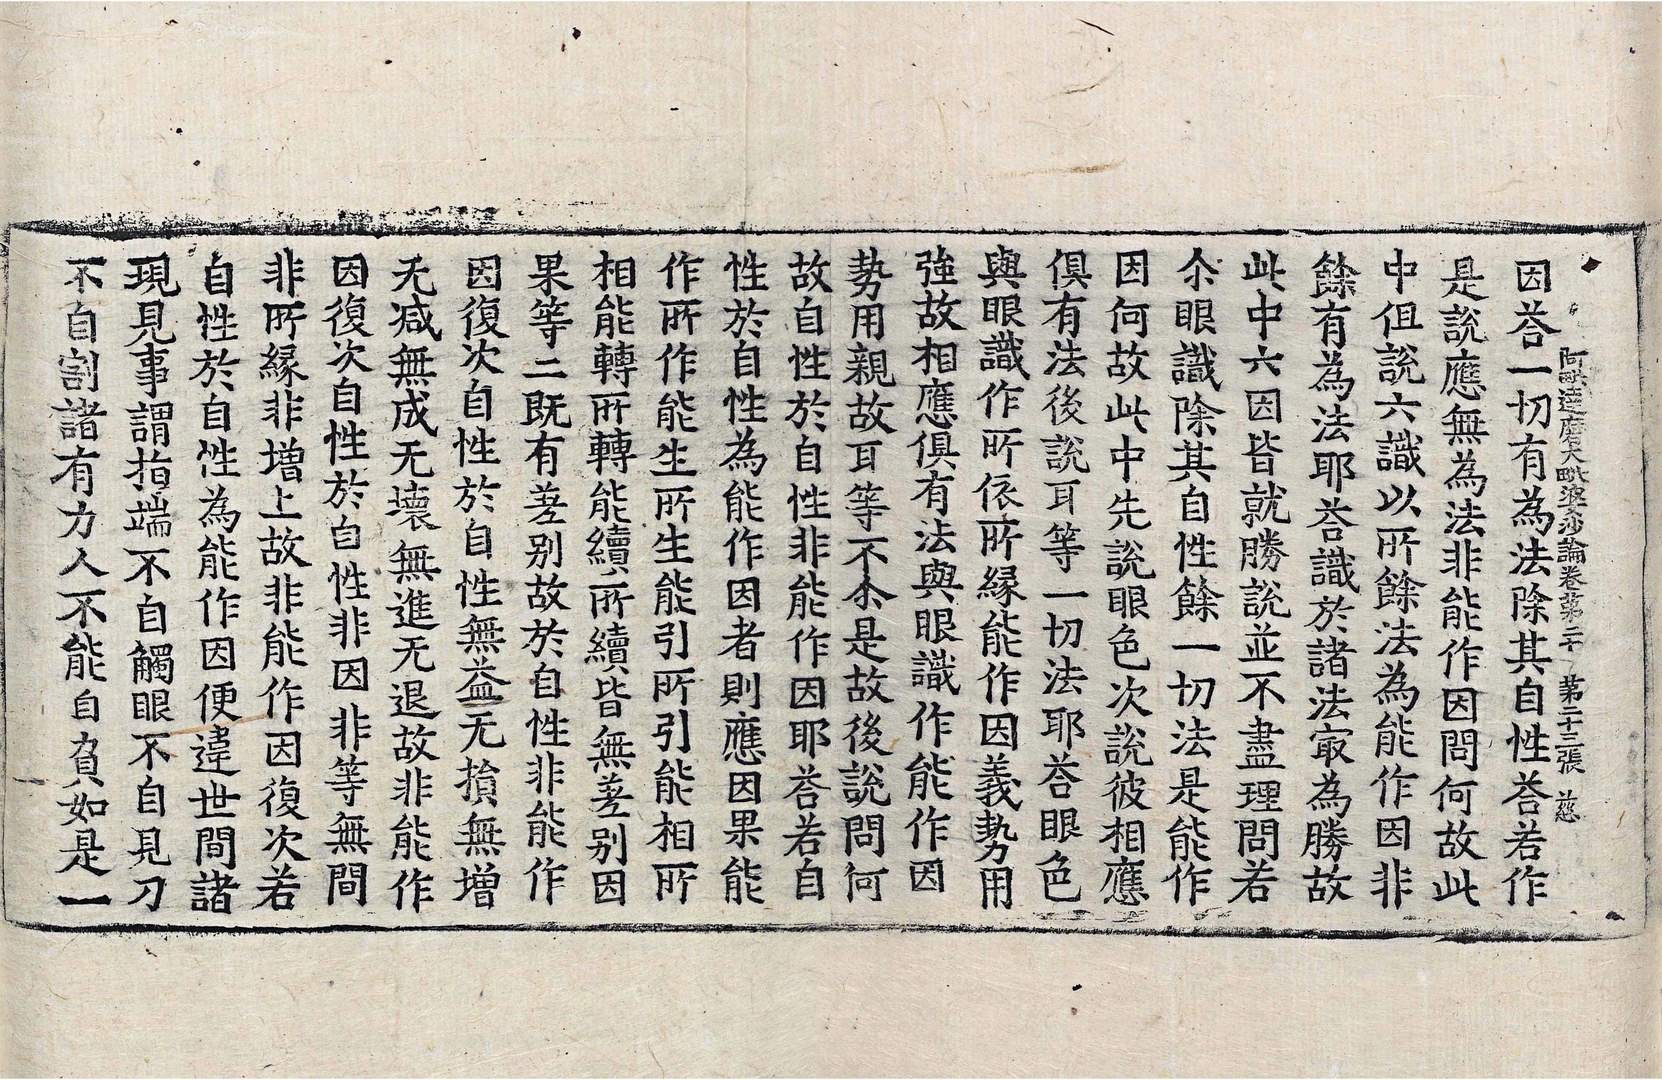 阿毗達磨大毗婆沙論卷第二十 第二十三張 慈
因荅一切有為法除其自性荅若作
是說應無為法非能作因問何故此
中但說六識以所餘法為能作因非
餘有為法耶荅識於諸法㝡為勝故
此中六因皆就勝說並不盡理問若
尒眼識除其自性餘一切法是能作
因何故此中先說眼色次說彼相應
俱有法後說耳等一切法耶荅眼色
與眼識作所依所緣能作因義勢用
強故相應俱有法與眼識作能作因
勢用親故耳等不尒是故後說問何
故自性於自性非能作因耶荅若自
性於自性為能作因者則應因果能
作所作能生所生能引所引能相所
相能轉所轉能續所續皆無差别因
果等二既有差别故於自性非能作
因復次自性於自性無益无損無增
无減無成无壞無進无退故非能作
因復次自性於自性非因非等無間
非所緣非增上故非能作因復次若
自性於自性為能作因便違世間諸
現見事謂指端不自觸眼不自見刀
不自割諸有力人不能自負如是一